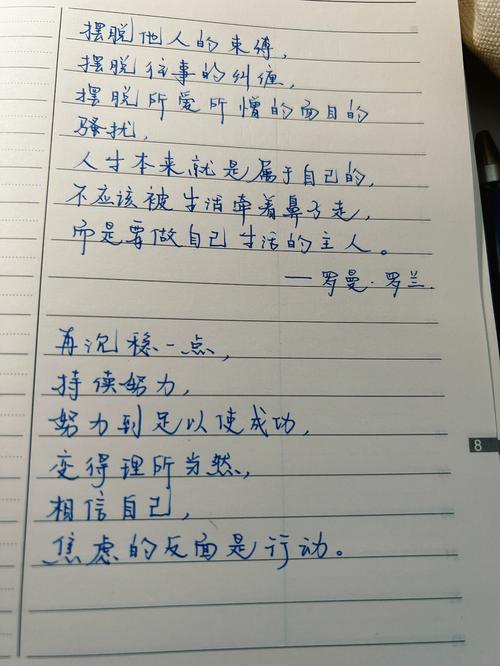 摆脱他人的束缚,
摆脱往事的纠缠,
摆脱所爱所憎的面目的
骚扰,
人生本来就是属于自己的,
不应该被生活牵着鼻子走,
而是要做自己生活的主人。
——罗曼·罗兰.
再沉稳一点,
持续努力,
努力到足以使成功,
变得理所当然,
相信自己,
焦虑的反面是行动。
8